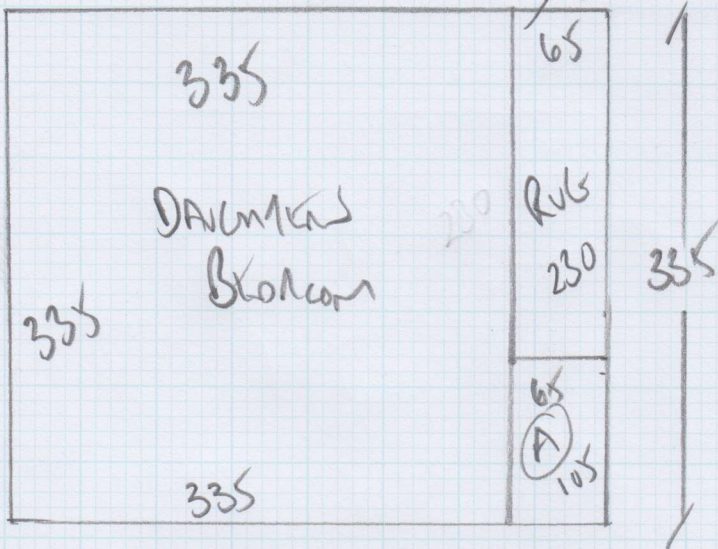 335
65
Daughters
Bedroom
230
Rug
230
335
335
65
A
105
335